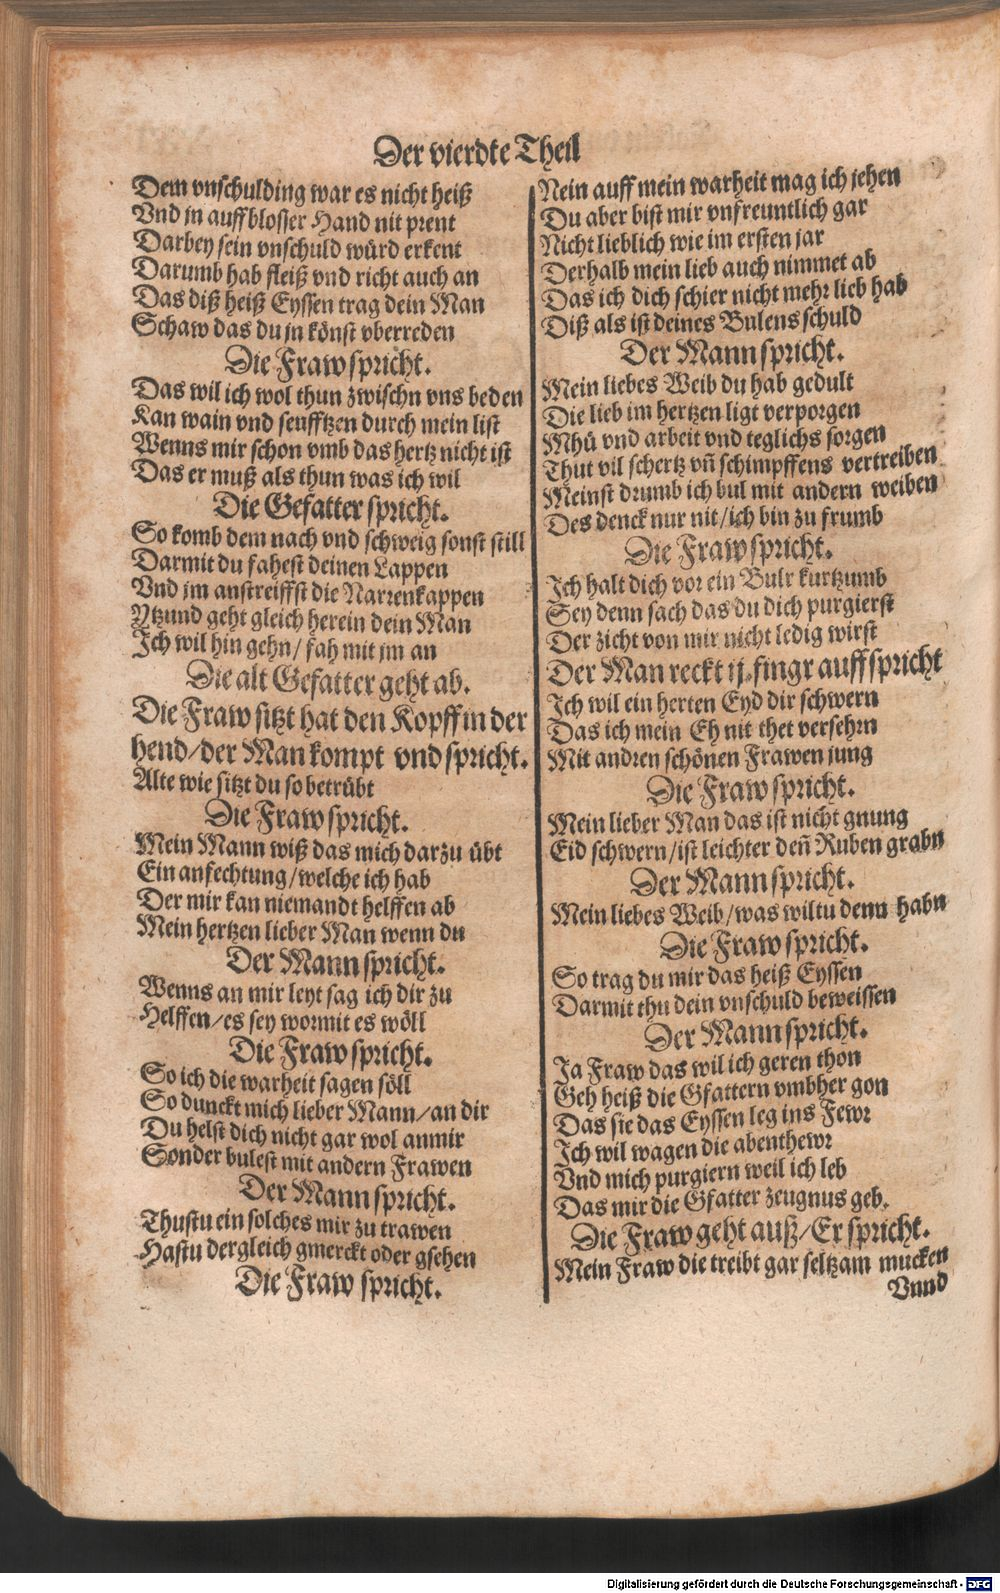 Der vierdte Theil
Dem vnschulding war es nicht heiß
Vnd jn auff blosser Hand nit prent
Darbey sein vnschuld würd erkent
Darumb hab fleiß vnd richt auch an
Das diß heiß Eyssen trag dein Man
Schaw das du jn könst vberreden
Die Fraw spricht.
Das wil ich wol thun zwischn vns beden
Kan wain vnd seufftzen durch mein list
Wenns mir schon vmb das hertz nicht ist
Das er muß als thun was ich wil
Die Gefatter spricht.
So komb dem nach vnd schweig sonst still
Darmit du fahest deinen Lappen
Vnd jm anstreiffst die Narrenkappen
Ytzund geht gleich herein dein Man
Ich wil hin gehn/ fah mit jm an
Die alt Gefatter geht ab.
Die Fraw sitzt hat den Kopff in der
hend/der Man kompt vnd spricht.
Alte wie sitzt du so betrübt
Die Fraw spricht.
Mein Mann wiß das mich darzu übt
Ein anfechtung/welche ich hab
Der mir kan niemandt helffen ab
Mein hertzen lieber Man wenn du
Der Mann spricht.
Wenns an mir leyt sag ich dir zu
Helffen/es sey wormit es wöll
Die Fraw spricht.
So ich die warheit sagen söll
So dunckt mich lieber Mann/an dir
Du helst dich nicht gar wol anmir
Sonder bulest mit andern Frawen
Der Mann spricht.
Thustu ein solches mir zu trawen
Hastu dergleich gmerckt oder gsehen
Die Fraw spricht.
Nein auff mein warheit mag ich jehen
Du aber bist mir vnfreuntlich gar
Nicht lieblich wie im ersten jar
Derhalb mein lieb auch nimmet ab
Das ich dich schier nicht mehr lieb hab
Diß als ist deines Bulens schuld
Der Mann spricht.
Mein liebes Weib du hab gedult
Die lieb im hertzen ligt verporgen
Mhü vnd arbeit vnd teglichs sorgen
Thut vil schertz vñ schimpffens vertreiben
Meinst drumb ich bul mit andern weiben
Des denck nur nit/ich bin zu frumb
Die Fraw spricht.
Ich halt dich vor ein Bulr kurtzumb
Sey denn sach das du dich purgierst
Der zicht von mir nicht ledig wirst
Der Man reckt ij. fingr auff spricht
Ich wil ein herten Eyd dir schwern
Das ich mein Eh nit thet versehrn
Mit andren schönen Frawen jung
Die Fraw spricht.
Mein lieber Man das ist nicht gnung
Eid schwern/ist leichter deñ Ruben grabn
Der Mann spricht.
Mein liebes Weib/was wiltu denn habn
Die Fraw spricht.
So trag du mir das heiß Eyssen
Darmit thu dein vnschuld beweissen
Der Mann spricht.
Ja Fraw das wil ich geren thon
Geh heiß die Gfattern vmbher gon
Das sie das Eyssen leg ins Fewr
Ich wil wagen die abenthewr
Vnd mich purgiern weil ich leb
Das mir die Gfatter zeugnus geb.
Die Fraw geht auß/Er spricht.
Mein Fraw die treibt gar seltzam mucken
Vnnd
Digitalisierung gefördert durch die Deutsche Forschungsgemeinschaft - DFG